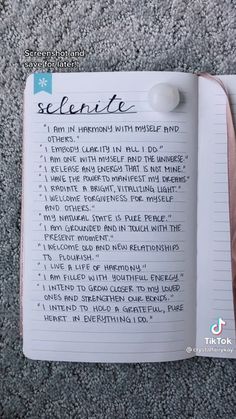 Screenshot and
save for later!
selenite
"I AM IN HARMONY WITH MYSELF AND
OTHERS."
"I EMBODY CLARITY IN ALL I DO."
"I AM ONE WITH MYSELF AND THE UNIVERSE."
"I RELEASE ANY ENERGY THAT IS NOT MINE."
"I HAVE THE POWER TO MANIFEST MY DREAMS."
"I RADIATE A BRIGHT, VITALIZING LIGHT."
"I WELCOME FORGIVENESS FOR MYSELF
AND OTHERS."
"MY NATURAL STATE IS PURE PEACE."
"I AM GROUNDED AND IN TOUCH WITH THE
PRESENT MOMENT."
"I WELCOME OLD AND NEW RELATIONSHIPS
TO FLOURISH."
"I LIVE A LIFE OF HARMONY."
"I AM FILLED WITH YOUTHFUL ENERGY."
"I INTEND TO GROW CLOSER TO MY LOVED
ONES AND STRENGTHEN OUR BONDS."
"I INTEND TO HOLD A GRATEFUL, PURE
HEART IN EVERYTHING I DO."
TikTok
@crystalfairykay